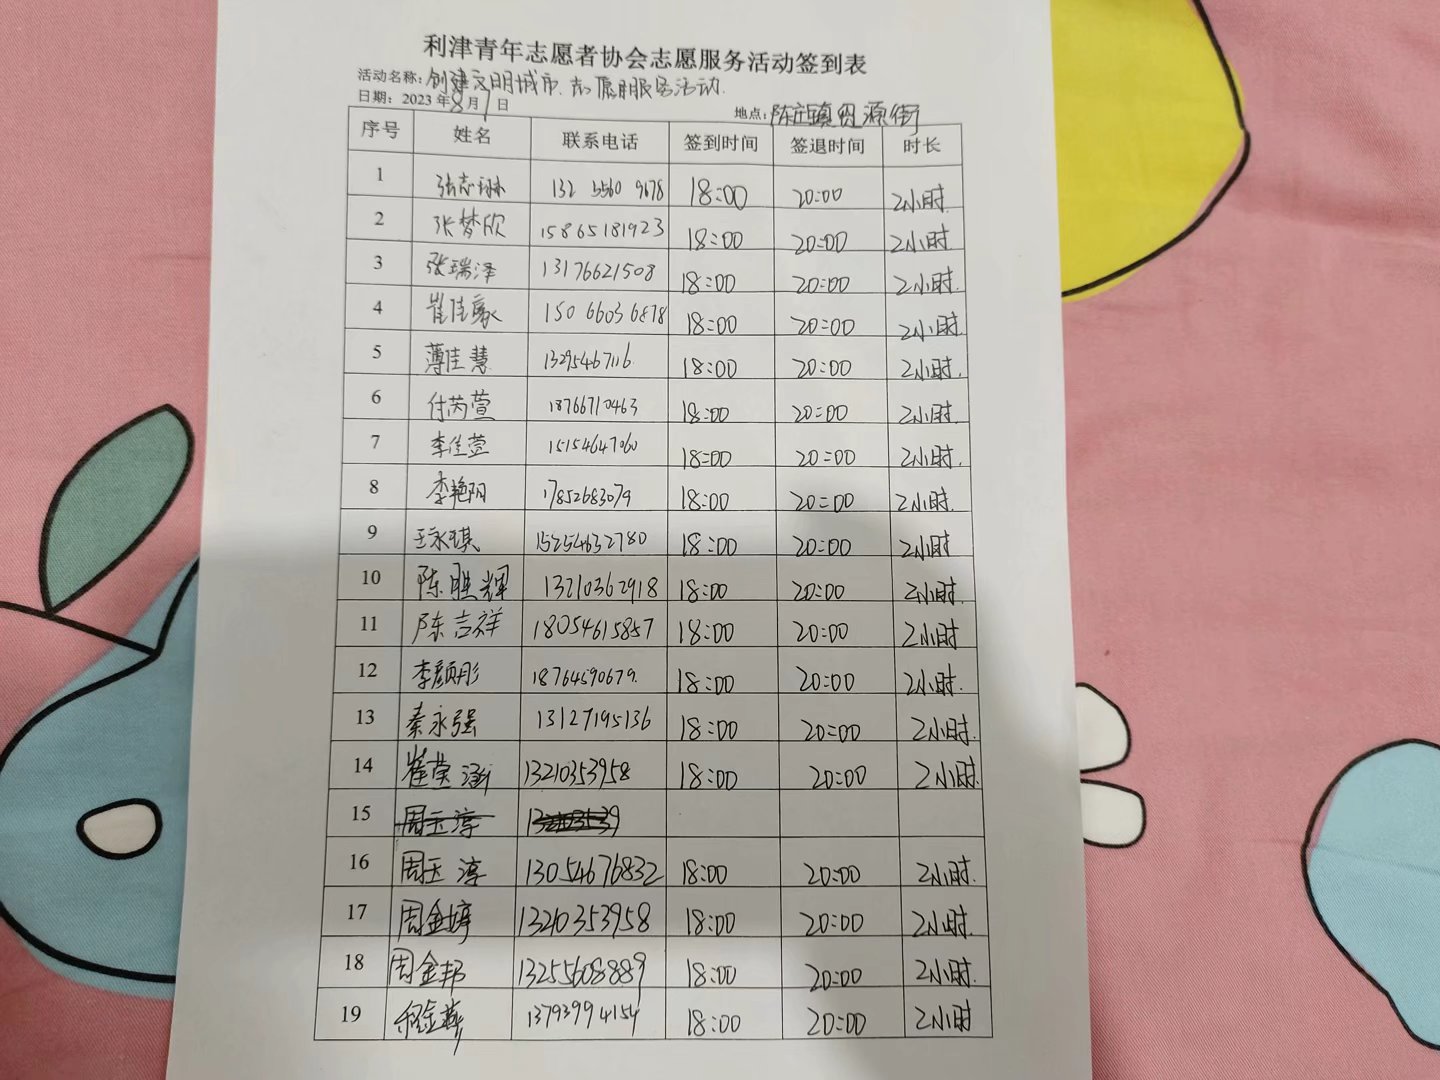 利津青年志愿者协会志愿服务活动签到表
活动名称：创建文明城市志愿服务活动.
日期：2023年8月7日 地点：陈庄镇 源街
序号 姓名 联系电话 签到时间 签退时间 时长
1 张志琳 132 5560 9678 18:00 20:00 2小时
2 张梦欣 15865181923 18:00 20:00 2小时
3 张瑞泽 13176621508 18:00 20:00 2小时.
4 崔佳豪 150 6603 6878 18:00 20:00 2小时
5 薄佳慧 13295467116. 18:00 20:00 2小时.
6 付芮萱 18766710463 18:00 20:00 2小时
7 李佳萱 15154647060 18:00 20:00 2小时.
8 李艳阳 17852683079 18:00 20:00 2小时.
9 王永琪 15254632780 18:00 20:00 2小时
10 陈胜辉 13210362918 18:00 20:00 2小时.
11 陈吉祥 18054615857 18:00 20:00 2小时
12 李颜彤 18764590679. 18:00 20:00 2小时.
13 秦永强 13127195136 18:00 20:00 2小时.
14 崔莹涵 13210353958 18:00 20:00 2小时.
15 周玉淳
16 周玉淳 13054676832 18:00 20:00 2小时.
17 周金婷 13210353958 18:00 20:00 2小时.
18 周金邦 13255608889 18:00 20:00 2小时.
19 程金燕 13793994154 18:00 20:00 2小时